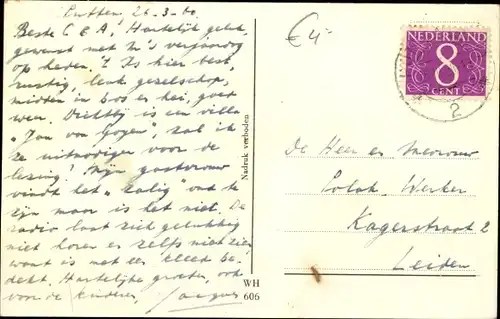 Putten, 26-3-60.
Beste C & A! Hartelijk geluk
gewenst met M's verjaardag
op heden. 't Is hier best,
rustig, leuk gezelschap,
midden in bos en hei, goed
weer. Dichtbij is een villa
"Jan van Goyen", zal ik
ze uitnodigen voor de
lezing? Mijn gastvrouw
vindt het "zalig" oud te
zijn maar is het niet. De
radio laat zich gelukkig
niet horen en zelfs niet zien,
want is met een kleed be-
dekt. Hartelijke groeten, ook
voor de kinderen,
Nadruk verboden
WH
606
€4
NEDERLAND
8
CENT
2
De Heer en Mevrouw
Polak-Werker
Kagerstraat 2
Leiden